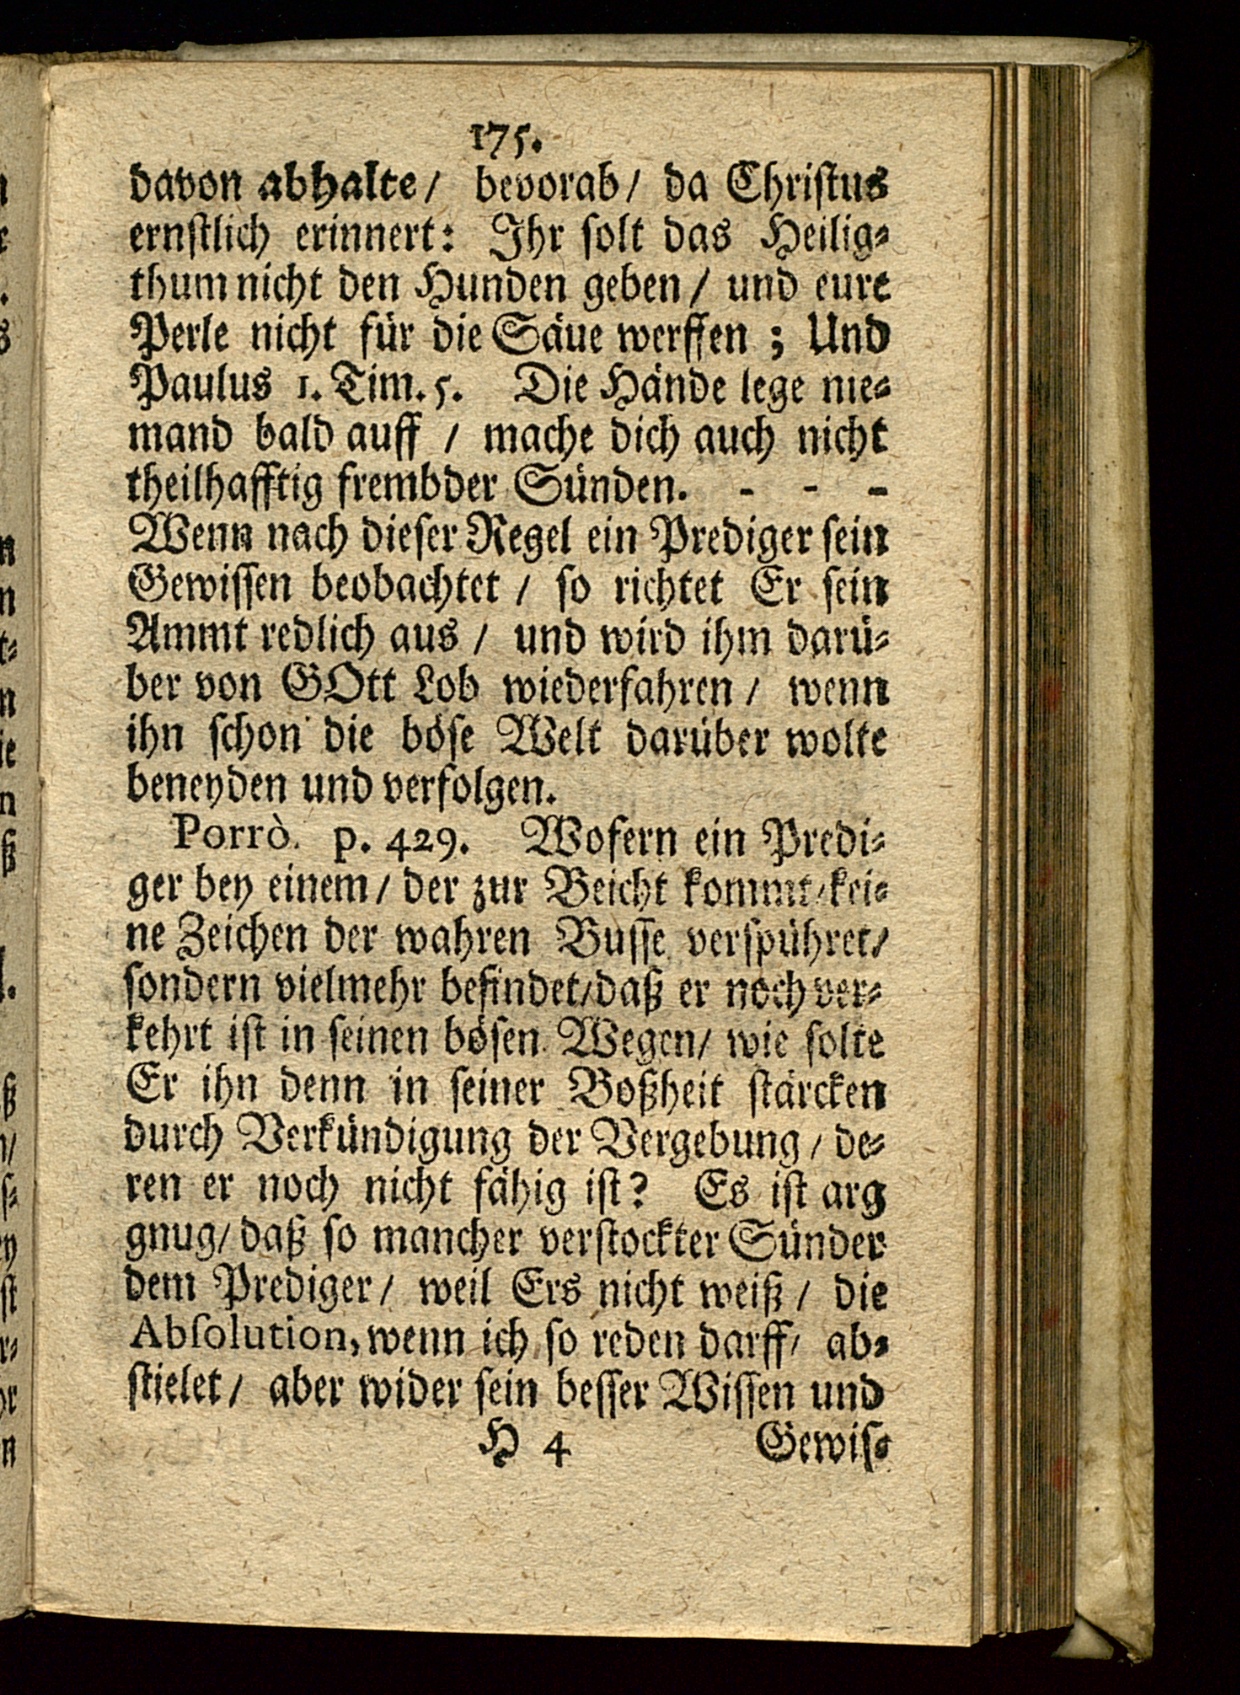 175.
davon abhalte/ bevorab/ da Christus
ernstlich erinnert: Ihr solt das Heilig-
thum nicht den Hunden geben/ und eure
Perle nicht für die Säue werffen; Und
Paulus 1. Tim. 5. Die Hände lege nie-
mand bald auff / mache dich auch nicht
theilhafftig frembder Sünden. - - -
Wenn nach dieser Regel ein Prediger sein
Gewissen beobachtet / so richtet Er sein
Ammt redlich aus / und wird ihm darü-
ber von GOtt Lob wiederfahren / wenn
ihn schon die böse Welt darüber wolte
beneyden und verfolgen.
Porrò. p. 429. Wofern ein Predi-
ger bey einem/ der zur Beicht kommt/kei-
ne Zeichen der wahren Busse verspühret/
sondern vielmehr befindet/daß er noch ver-
kehrt ist in seinen bösen Wegen/ wie solte
Er ihn denn in seiner Boßheit stärcken
durch Verkündigung der Vergebung / de-
ren er noch nicht fähig ist? Es ist arg
gnug/ daß so mancher verstockter Sünder
dem Prediger/ weil Ers nicht weiß / die
Absolution, wenn ich so reden darff/ ab-
stielet/ aber wider sein besser Wissen und
H 4 Gewis-